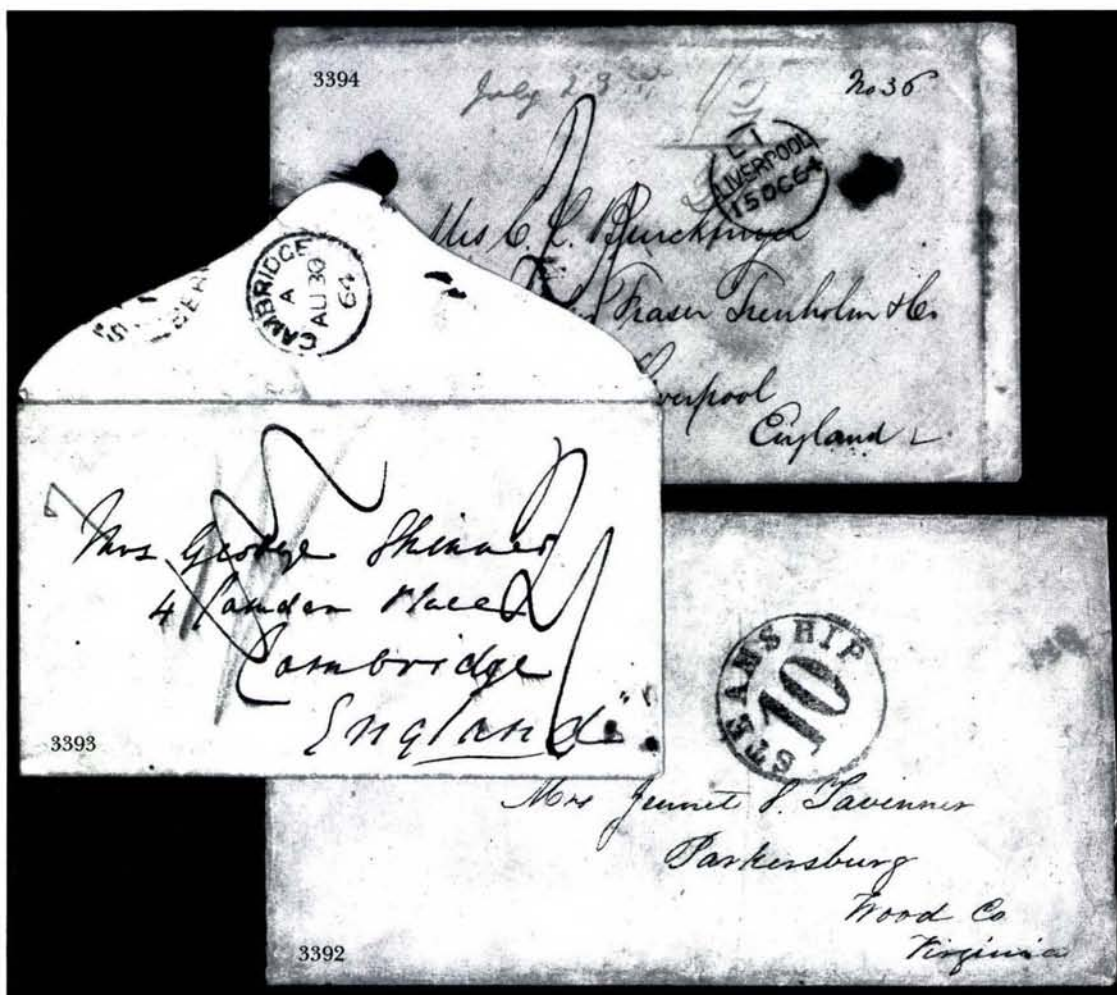 3394
July 23
No 36
L 1
LIVERPOOL
15 OC 64
Mrs C. L.
Fraser Trenholm & Co
Liverpool
England
CAMBRIDGE
A
AU 30
64
Mrs George Skinner
4 Camden Place
Cambridge
England
3393
STEAMSHIP
10
Mrs Jennet S. Tavenner
Parkersburg
Wood Co
Virginia
3392